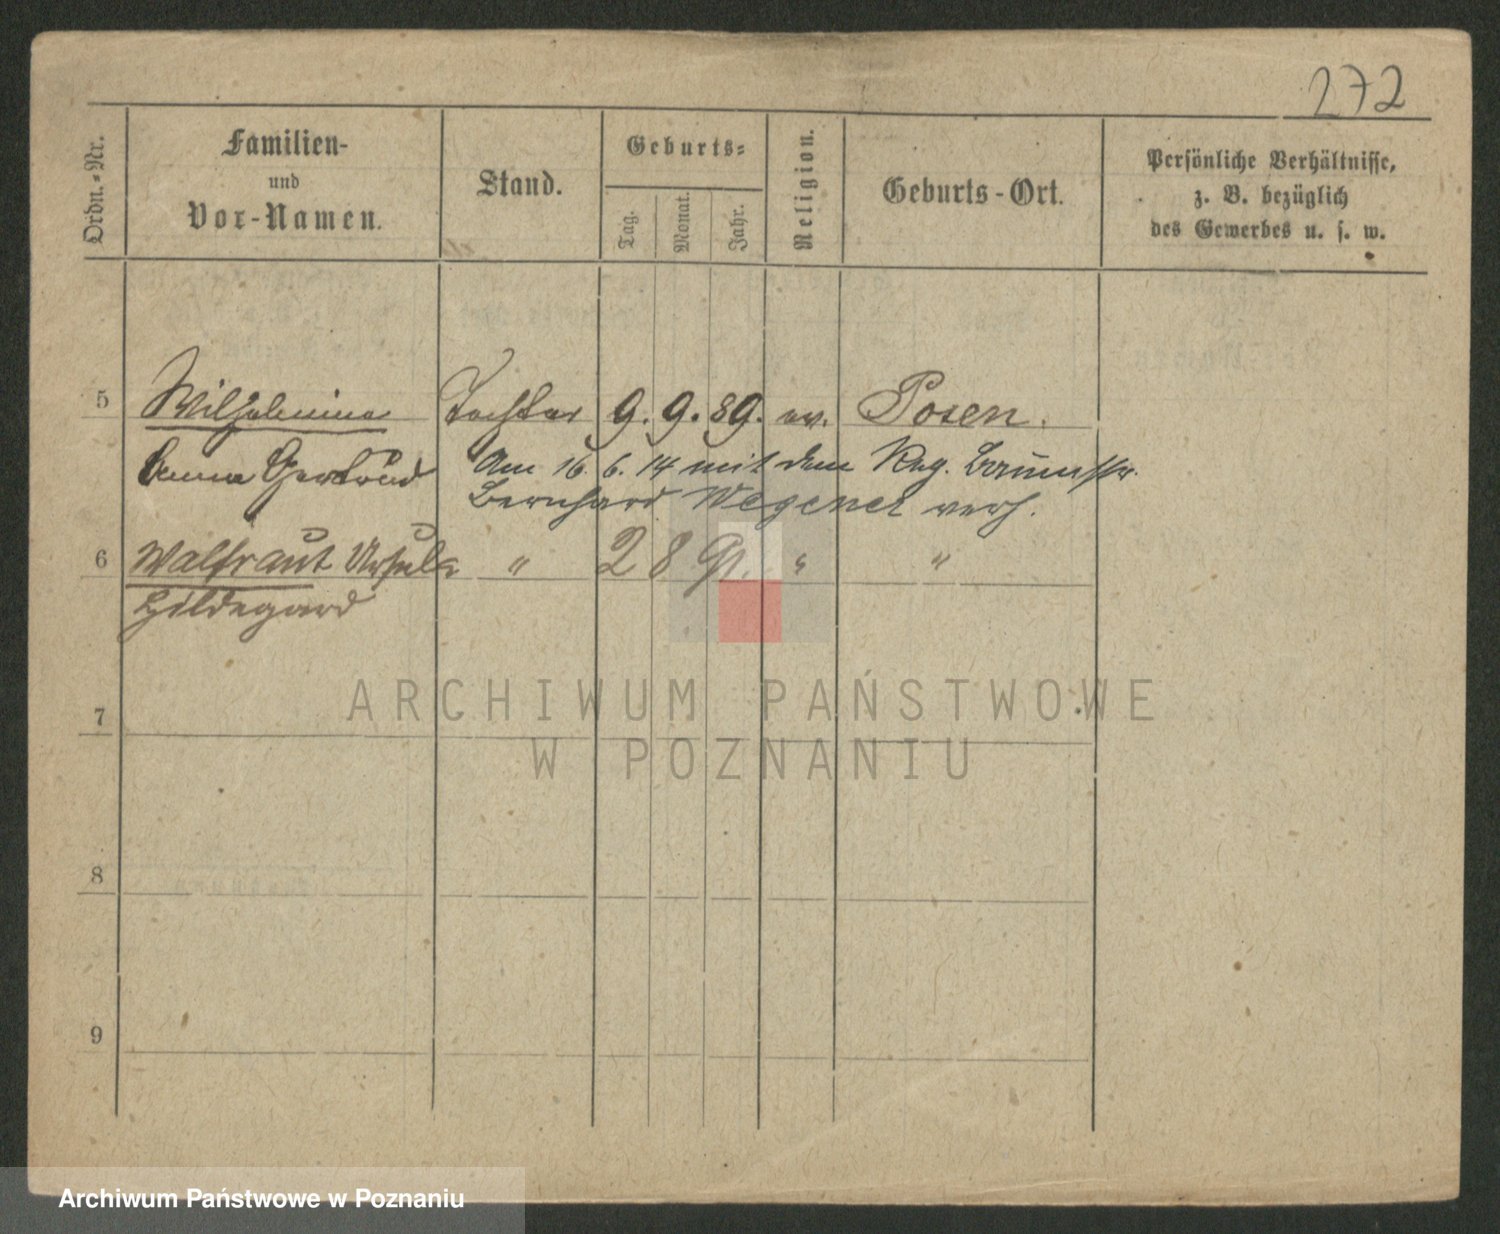 272
Ordn.-Nr.
Familien-
und
Vor-Namen.
Stand.
Geburts-
Tag.
Monat.
Jahr.
Religion.
Geburts-Ort.
Persönliche Verhältnisse,
z. B. bezüglich
des Gewerbes u. s. w.
5 Wilhelmine Tochter 9. 9. 89. ev. Posen.
Anna Gertrud Am 16. 6. 14 mit dem Reg. Baumstr.
Bernhard Wegener verh.
6 Walfraut Ursula " 2 8 91. " "
Hildegard
7
ARCHIWUM PAŃSTWOWE
W POZNANIU
8
9
Archiwum Państwowe w Poznaniu